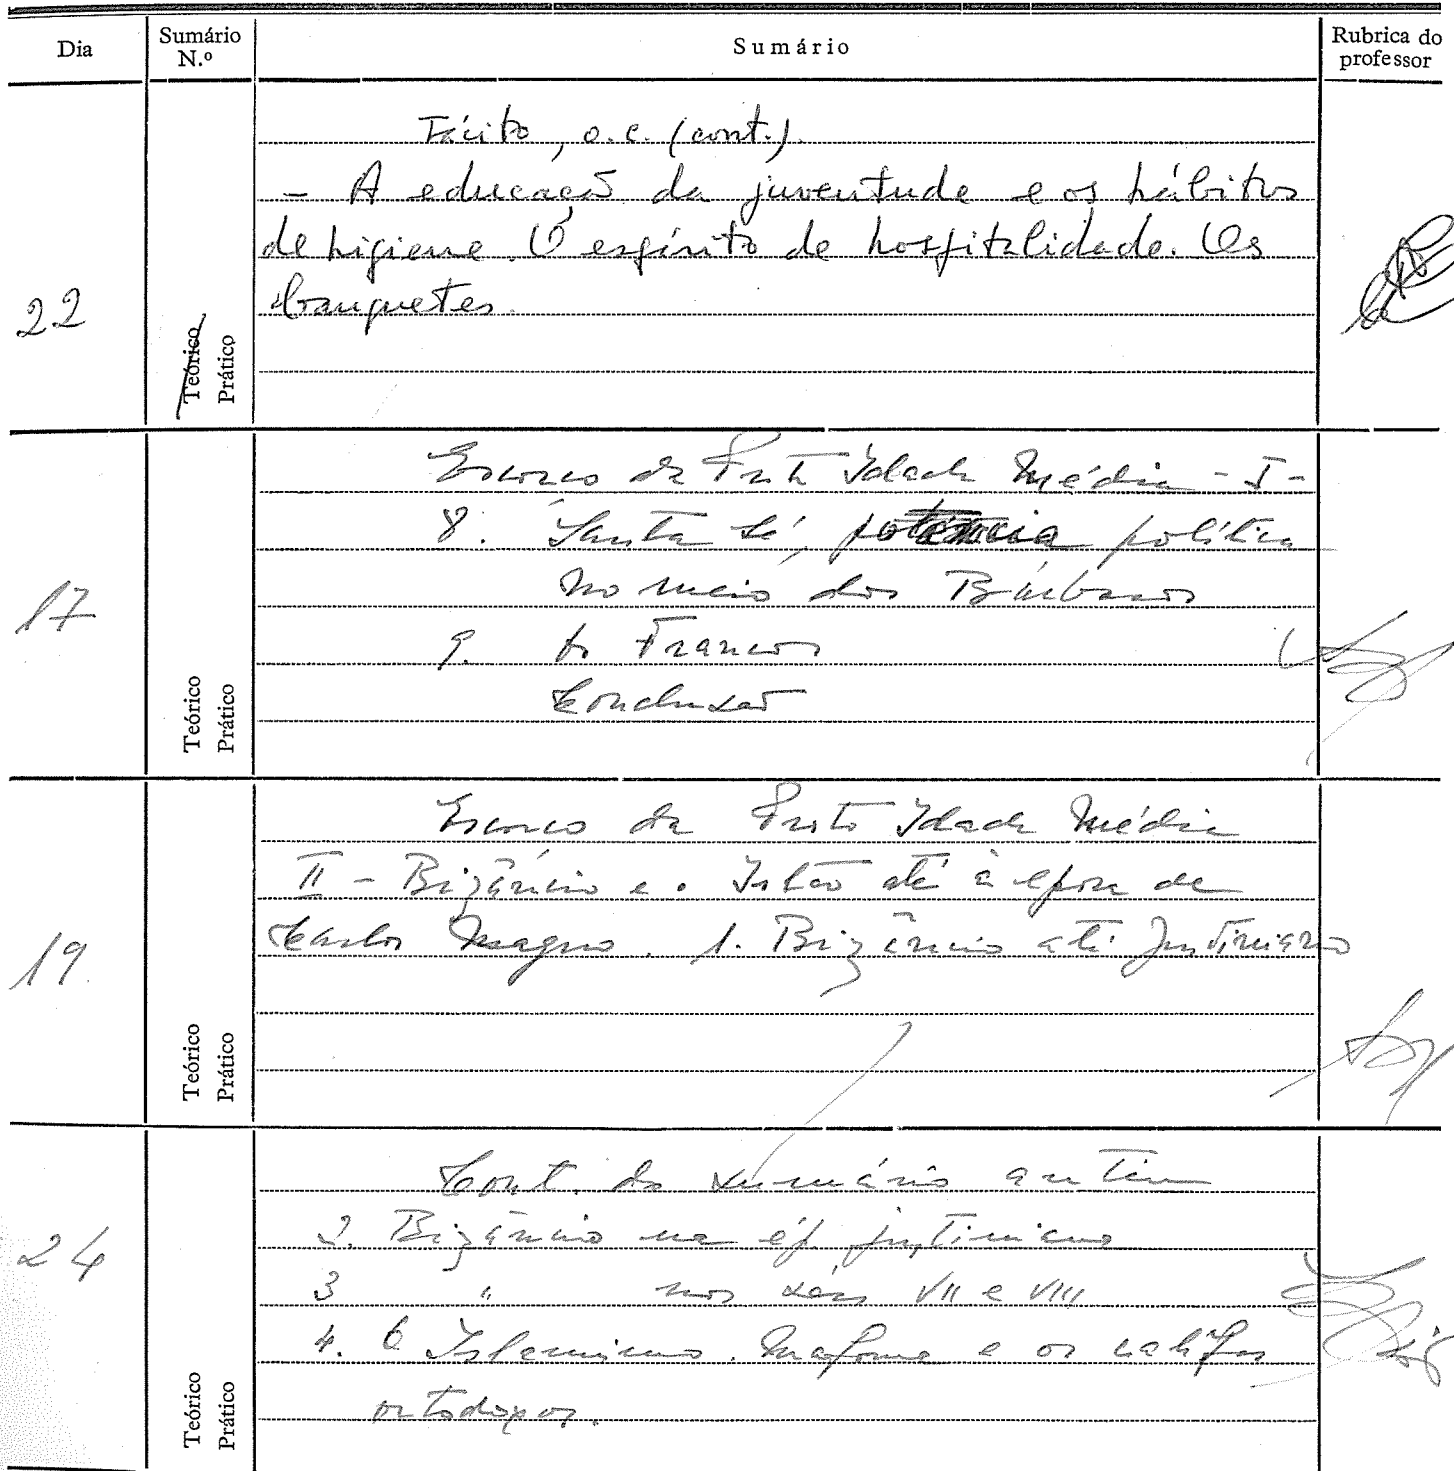 Dia
Sumário N.º
Sumário
Rubrica do professor
Tácito, o.c. (cont.).
- A educação da juventude e os hábitos
de higiene. O espírito de hospitalidade. Os
banquetes.
22
Teórico
Prático
Escorço da Proto Idade Média - I -
8. Santa Sé, potência política
no meio dos Bárbaros
9. Os Francos
Conclusão
17
Teórico
Prático
Escorço da Proto Idade Média
II - Bizâncio e o Islão até à época de
Carlos Magno. 1. Bizâncio até Justiniano
19.
Teórico
Prático
Cont. do sumário anterior
2. Bizâncio na ép. justiniana
3 " nos sécs VII e VIII
4. O Islamismo. Mafoma e os califas
ortodoxos.
24
Teórico
Prático